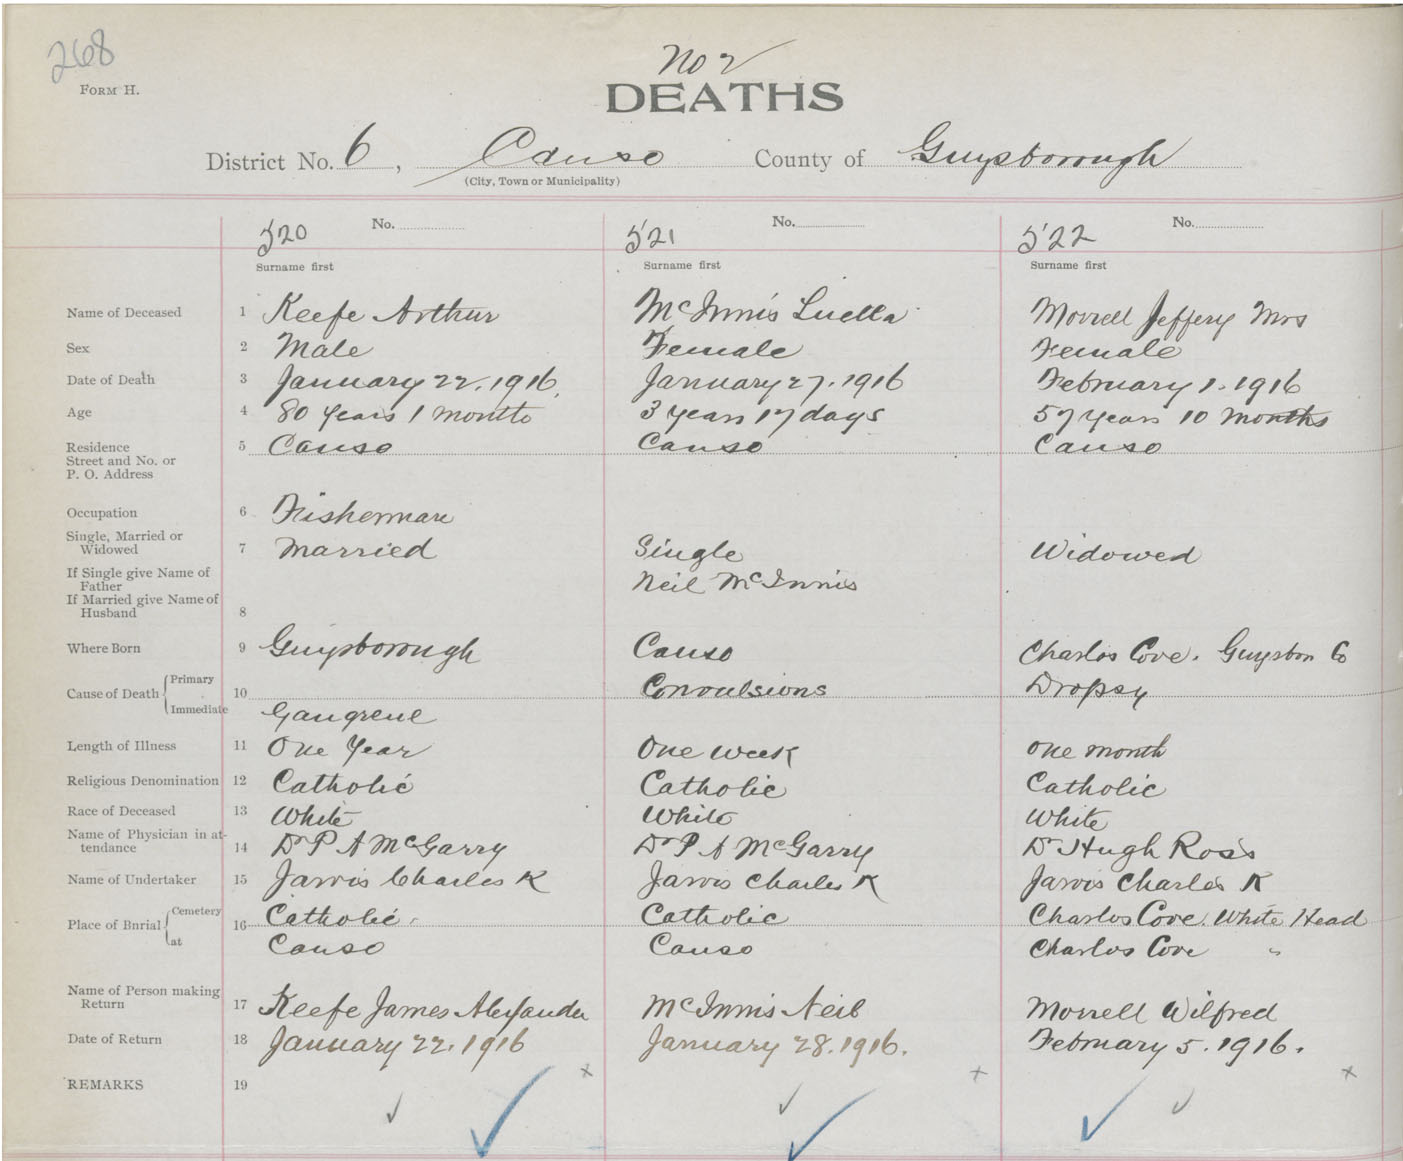 268
No 2
FORM H.
DEATHS
District No. 6, Canso County of Guysborough
(City, Town or Municipality)
520 No. 521 No. 522 No.
Surname first Surname first Surname first
Name of Deceased 1 Keefe Arthur McInnis Luella Morrell Jeffery Mrs
Sex 2 Male Female Female
Date of Death 3 January 22, 1916 January 27, 1916 February 1. 1916
Age 4 80 years 1 month 3 years 17 days 57 years 10 months
Residence 5 Canso Canso Canso
Street and No. or
P. O. Address
Occupation 6 Fisherman
Single, Married or
Widowed 7 Married Single Widowed
If Single give Name of
Father Neil McInnis
If Married give Name of
Husband 8
Where Born 9 Guysborough Canso Charlos Cove. Guysboro Co
Cause of Death Primary 10 Convulsions Dropsy
Immediate Gangrene
Length of Illness 11 One Year One week one month
Religious Denomination 12 Catholic Catholic Catholic
Race of Deceased 13 White White White
Name of Physician in at-
tendance 14 Dr P A McGarry Dr P A McGarry Dr Hugh Ross
Name of Undertaker 15 Jarvis Charles K Jarvis Charles K Jarvis Charles K
Place of Burial Cemetery 16 Catholic Catholic Charlos Cove. White Head
at Canso Canso Charlos Cove "
Name of Person making
Return 17 Keefe James Alexander McInnis Neil Morrell Wilfred
Date of Return 18 January 22. 1916 January 28. 1916. February 5. 1916.
REMARKS 19